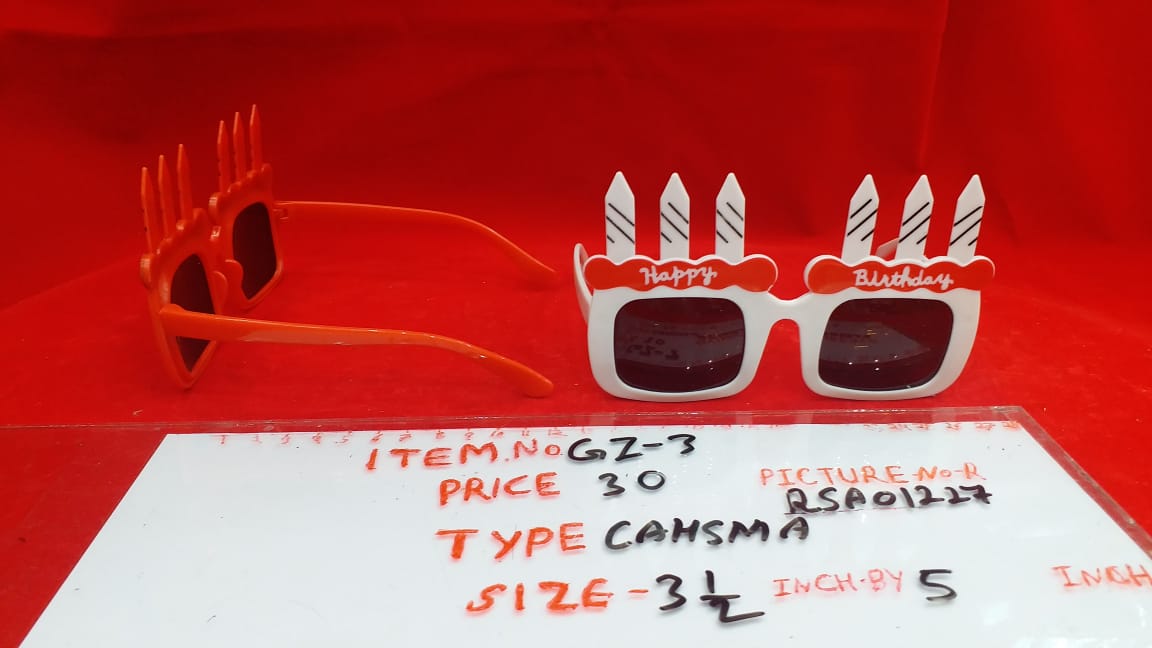 Happy Birthday
ITEM.No. GZ-3
PRICE 30
PICTURE-No-R
RSA01227
TYPE CAHSMA
SIZE - 3 1/2 INCH-BY 5 INCH